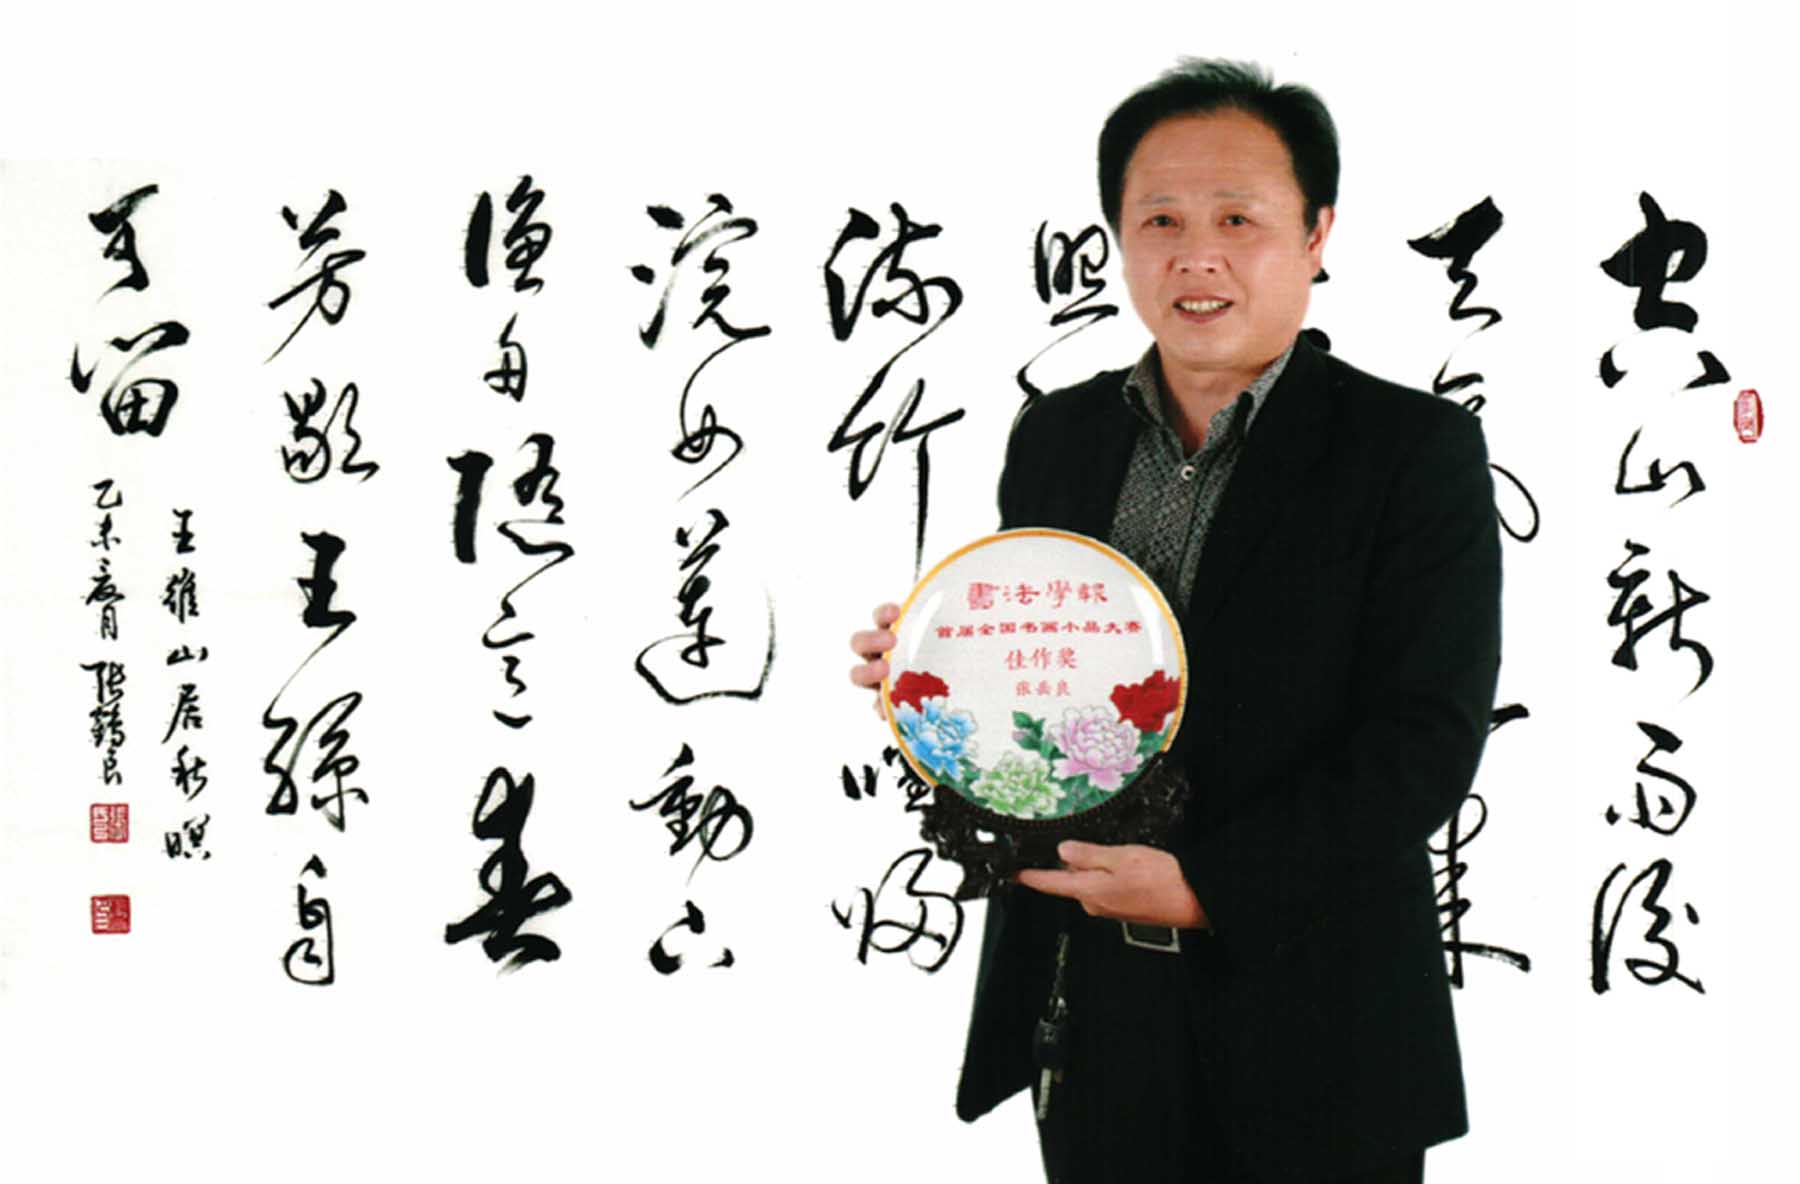 空山新雨後
天氣來
照
流竹喧歸
浣女蓮動下
漁舟隨意春
芳歇王孫自
可留
王維山居秋暝
乙未夏月 張鶴良
書法學報
首届全国书画小品大赛
佳作奖
张岳良